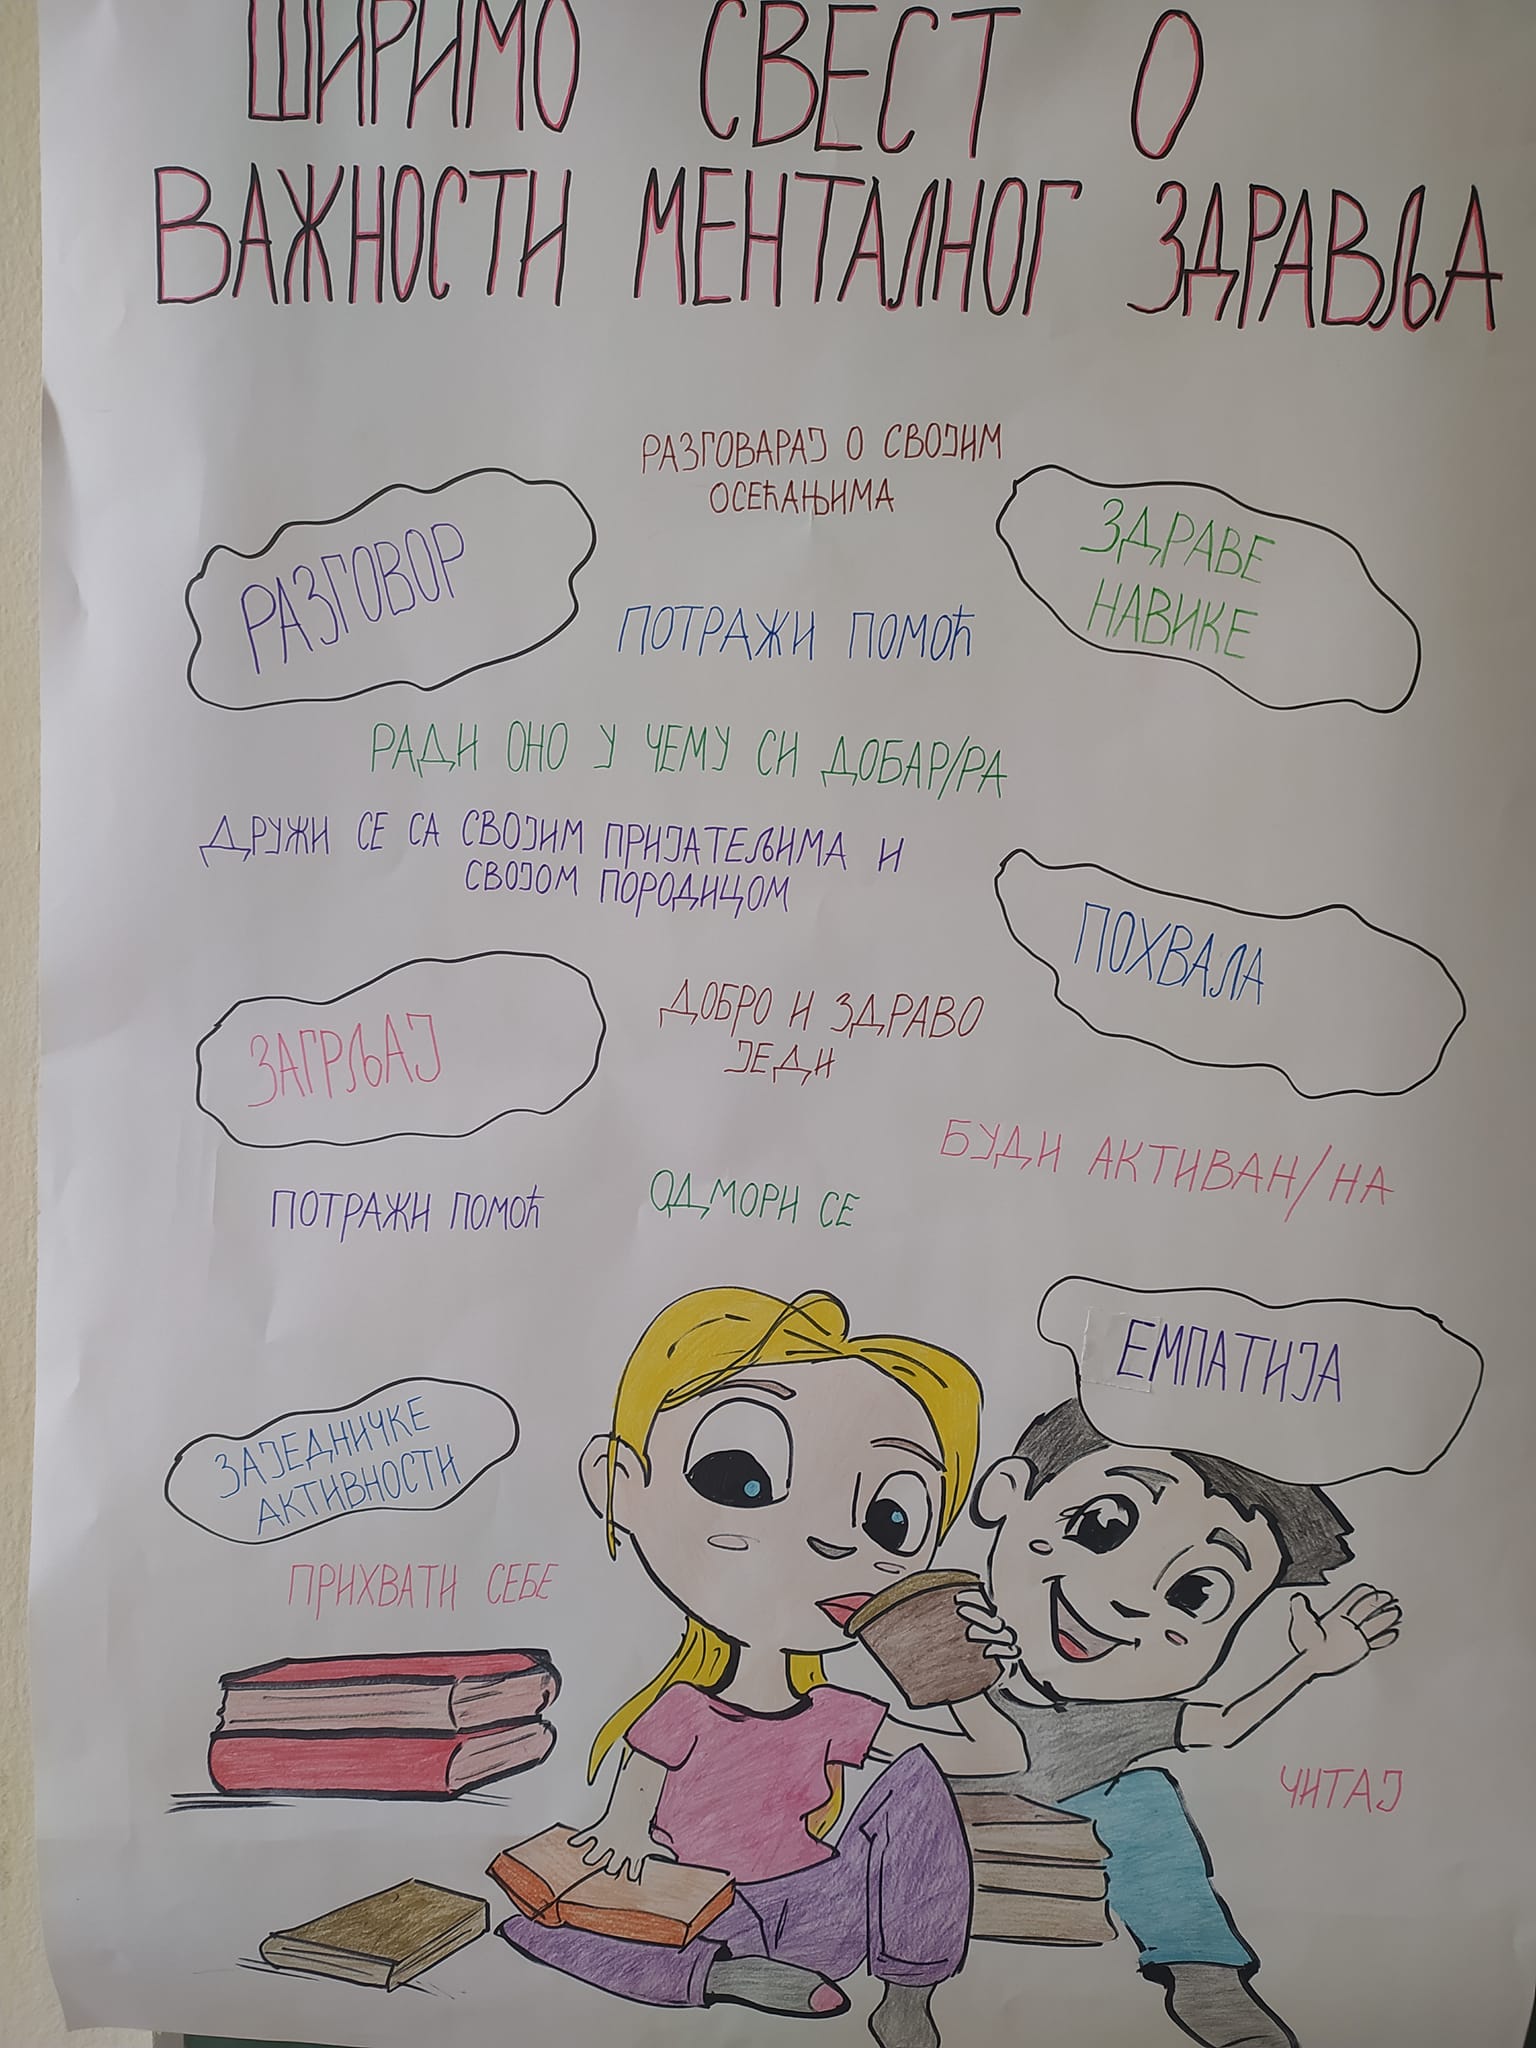 ШИРИМО СВЕСТ О
ВАЖНОСТИ МЕНТАЛНОГ ЗДРАВЉА
РАЗГОВАРАЈ О СВОЈИМ
ОСЕЋАЊИМА
РАЗГОВОР
ЗДРАВЕ
НАВИКЕ
ПОТРАЖИ ПОМОЋ
РАДИ ОНО У ЧЕМУ СИ ДОБАР/РА
ДРУЖИ СЕ СА СВОЈИМ ПРИЈАТЕЉИМА И
СВОЈОМ ПОРОДИЦОМ
ПОХВАЛА
ЗАГРЉАЈ
ДОБРО И ЗДРАВО
ЈЕДИ
БУДИ АКТИВАН/НА
ПОТРАЖИ ПОМОЋ
ОДМОРИ СЕ
ЕМПАТИЈА
ЗАЈЕДНИЧКЕ
АКТИВНОСТИ
ПРИХВАТИ СЕБЕ
ЧИТАЈ